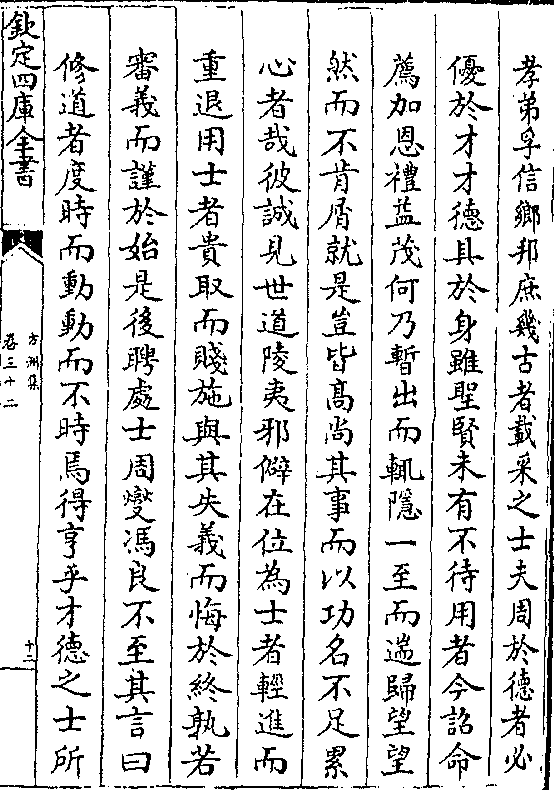 孝弟孚信鄉邦庶幾古者載采之士夫周於德者必
優於才才德具於身雖聖賢未有不待用者今詔命
薦加恩禮益茂何乃暫出而輒隱一至而遄歸望望
然而不肯屑就是豈皆高尚其事而以功名不足累
心者哉彼誠見世道陵夷邪僻在位為士者輕進而
重退用士者貴取而賤施與其失義而悔於終孰若
審義而謹於始是後聘處士周燮馮良不至其言曰
修道者度時而動動而不時焉得亨乎才德之士所
欽定四庫全書
方洲集
卷三十二
十二